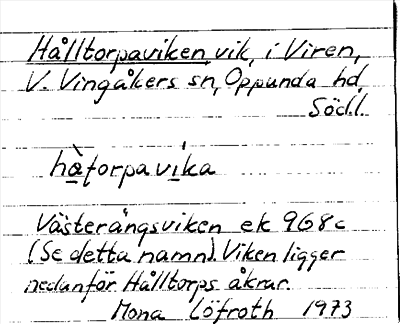 Hålltorpaviken, vik, i Viren,
V. Vingåkers sn, Oppunda hd,
Södl.
hà̱ƫorpavi̱ka
Västerängsviken ek 9G8c
(Se detta namn). Viken ligger
nedanför Hålltorps åkrar.
Mona Löfroth 1973